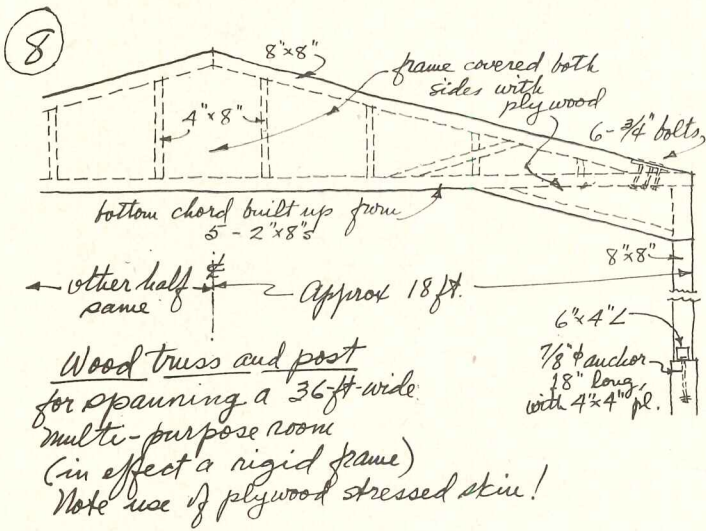 8
8"x8"
frame covered both
sides with
plywood
4"x8"
6-3/4" bolts
bottom chord built up from
5 - 2"x8"s
8"x8"
other half
same
℄
Approx 18 ft.
6"x4" L
7/8" ϕ anchor
18" long,
with 4"x4" pl.
Wood truss and post
for spanning a 36-ft-wide
multi-purpose room
(in effect a rigid frame)
Note use of plywood stressed skin!